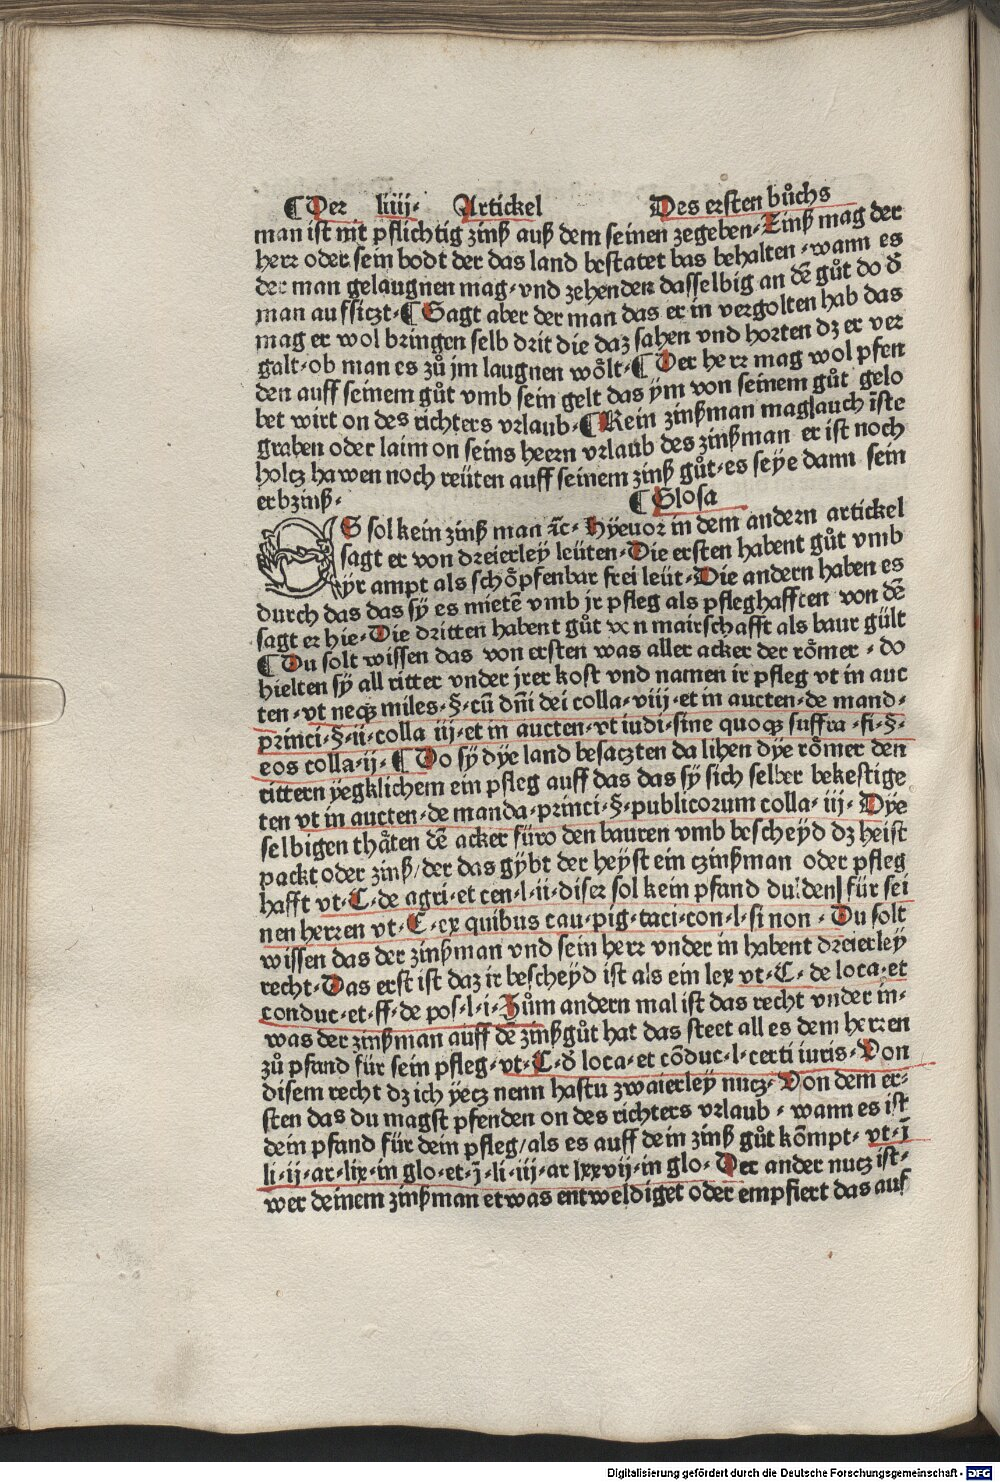 ¶Der liiij· Artickel Des ersten bůchs
man ist nit pflichtig zinß auß dem seinen zegeben· Zinß mag der
herr oder sein bodt der das land bestatet bas behalten · wann es
der man gelaugnen mag· vnd zehenden dasselbig an dē gůt do d̄
man auffsiczt·¶Sagt aber der man das er in vergolten hab das
mag er wol bringen selb drit die daz sahen vnd horten dz er ver
galt·ob man es zů jm laugnen woͤlt·¶Der herr mag wol pfen
den auff seinem gůt vmb sein gelt das ẏm von seinem gůt gelo
bet wirt on des richters vrlaub·¶Kein zinßman mag auch īste
graben oder laim on seins heern vrlaub des zinßman er ist noch
holcz hawen noch reüten auff seinem zinß gůt·es seẏe dann sein
erbzinß· ¶Glosa
ES sol kein zinß man ꝛc· Hẏeuor in dem andern artickel
sagt er von dreierleẏ leüten·Die ersten habent gůt vmb
yr ampt als schoͤpfenbar frei leüt·Die andern haben es
durch das das sẏ es mietē vmb jr pfleg als pfleghafften von dē
sagt er hie·Die dritten habent gůt von mairschafft als baur gült
¶Du solt wissen das von ersten was aller acker der roͤmer · do
hielten sẏ all ritter vnder jrer kost vnd namen ir pfleg vt in auc
ten·vt neqꝫ miles·§·cū dn̄i dei colla·viij·et in aucten·de mand·
princi·§·ii·colla iij·et in aucten·vt iudi·sine quoqꝫ suffra·fi·§·
eos colla·ij·¶Do sẏ dẏe land besaczten da lihen dẏe roͤmer den
rittern ẏegklichem ein pfleg auff das das sẏ sich selber bekestige
ten vt in aucten·de manda·princi·§·publicorum colla·iij·Dẏe
selbigen thåten dē acker füro den bauren vmb bescheẏd dz heist
packt oder zinß/der das gẏbt der heẏst ein czinßman oder pfleg
hafft vt·C·de agri·et cen·l·ii·diser sol kein pfand dulden für sei
nen herren vt·C·ex quibus cau·pig·taci·con·l·si non·Du solt
wissen das der zinßman vnd sein herr vnder in habent dreierleẏ
recht·Das erst ist daz ir bescheẏd ist als ein lex vt·C·de loca·et
conduc·et·ff·de pos·l·i·Zům andern mal ist das recht vnder in·
was der zinßman auff dē zinßgůt hat das steet all es dem herren
zů pfand für sein pfleg·vt·C·d̄ loca·et cōduc·l·certi iuris·Von
disem recht dz ich ẏecz nenn hastu zwaierleẏ nucz·Von dem er·
sten das du magst pfenden on des richters vrlaub·wann es ist
dein pfand für dein pfleg/als es auff dein zinß gůt kōmpt·vt·ī
li·ij·ar·lix·in glo·et·ī·li·iij·ar lxxvij·in glo·Der ander nucz ist·
wer deinem zinßman etwas entweldiget oder empfiert das auf
Digitalisierung gefördert durch die Deutsche Forschungsgemeinschaft - DFG